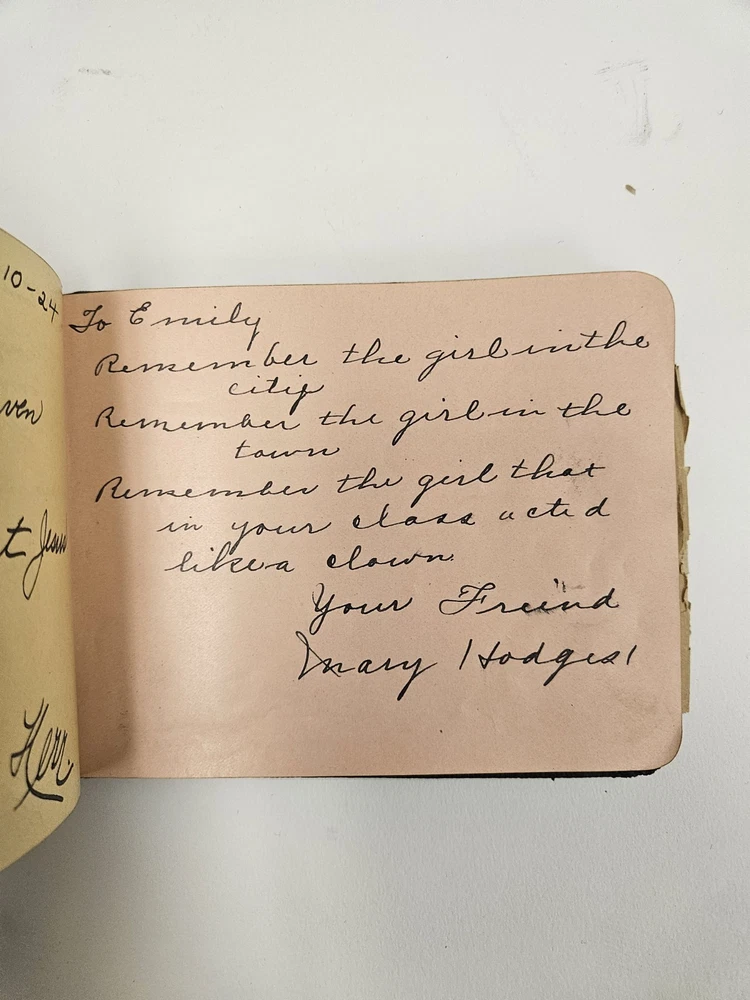 10-24
ven
t Jesus
Herr.
To Emily
Remember the girl in the
city
Remember the girl in the
town
Remember the girl that
in your class acted
like a clown.
Your Freind
Mary Hodges